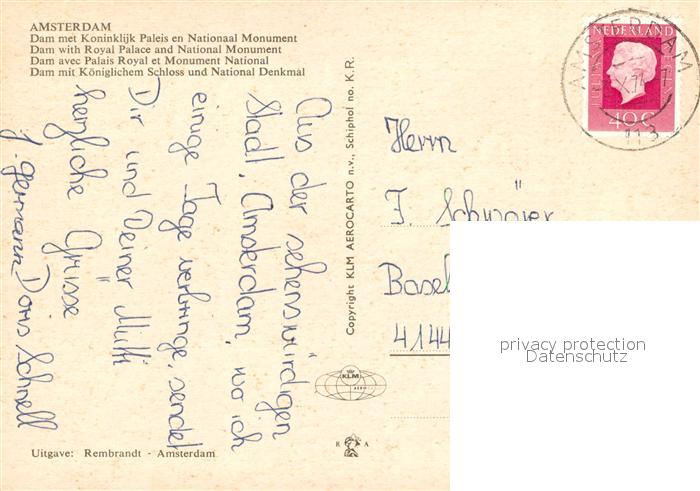 AMSTERDAM
Dam met Koninklijk Paleis en Nationaal Monument
Dam with Royal Palace and National Monument
Dam avec Palais Royal et Monument National
Dam mit Königlichem Schloss und National Denkmal
Aus der sehenswürdigen
Stadt, Amsterdam, wo ich
einige Tage verbringe, sendet
Dir und Deiner Mutti
herzliche Grüsse
J. Germann Doris Schnell
Uitgave: Rembrandt - Amsterdam
Copyright KLM AEROCARTO n.v., Schiphol no. K.R.
KLM
AERO
R A
AMSTERDAM
X.74
113
NEDERLAND
40 C
Herrn
J. Schwöier
Basel
4144
privacy protection
Datenschutz